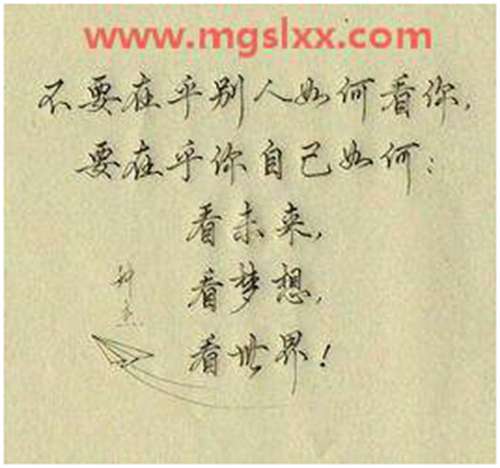 www.mgslxx.com
不要在乎别人如何看你，
要在乎你自己如何：
看未来，
看梦想，
看世界！